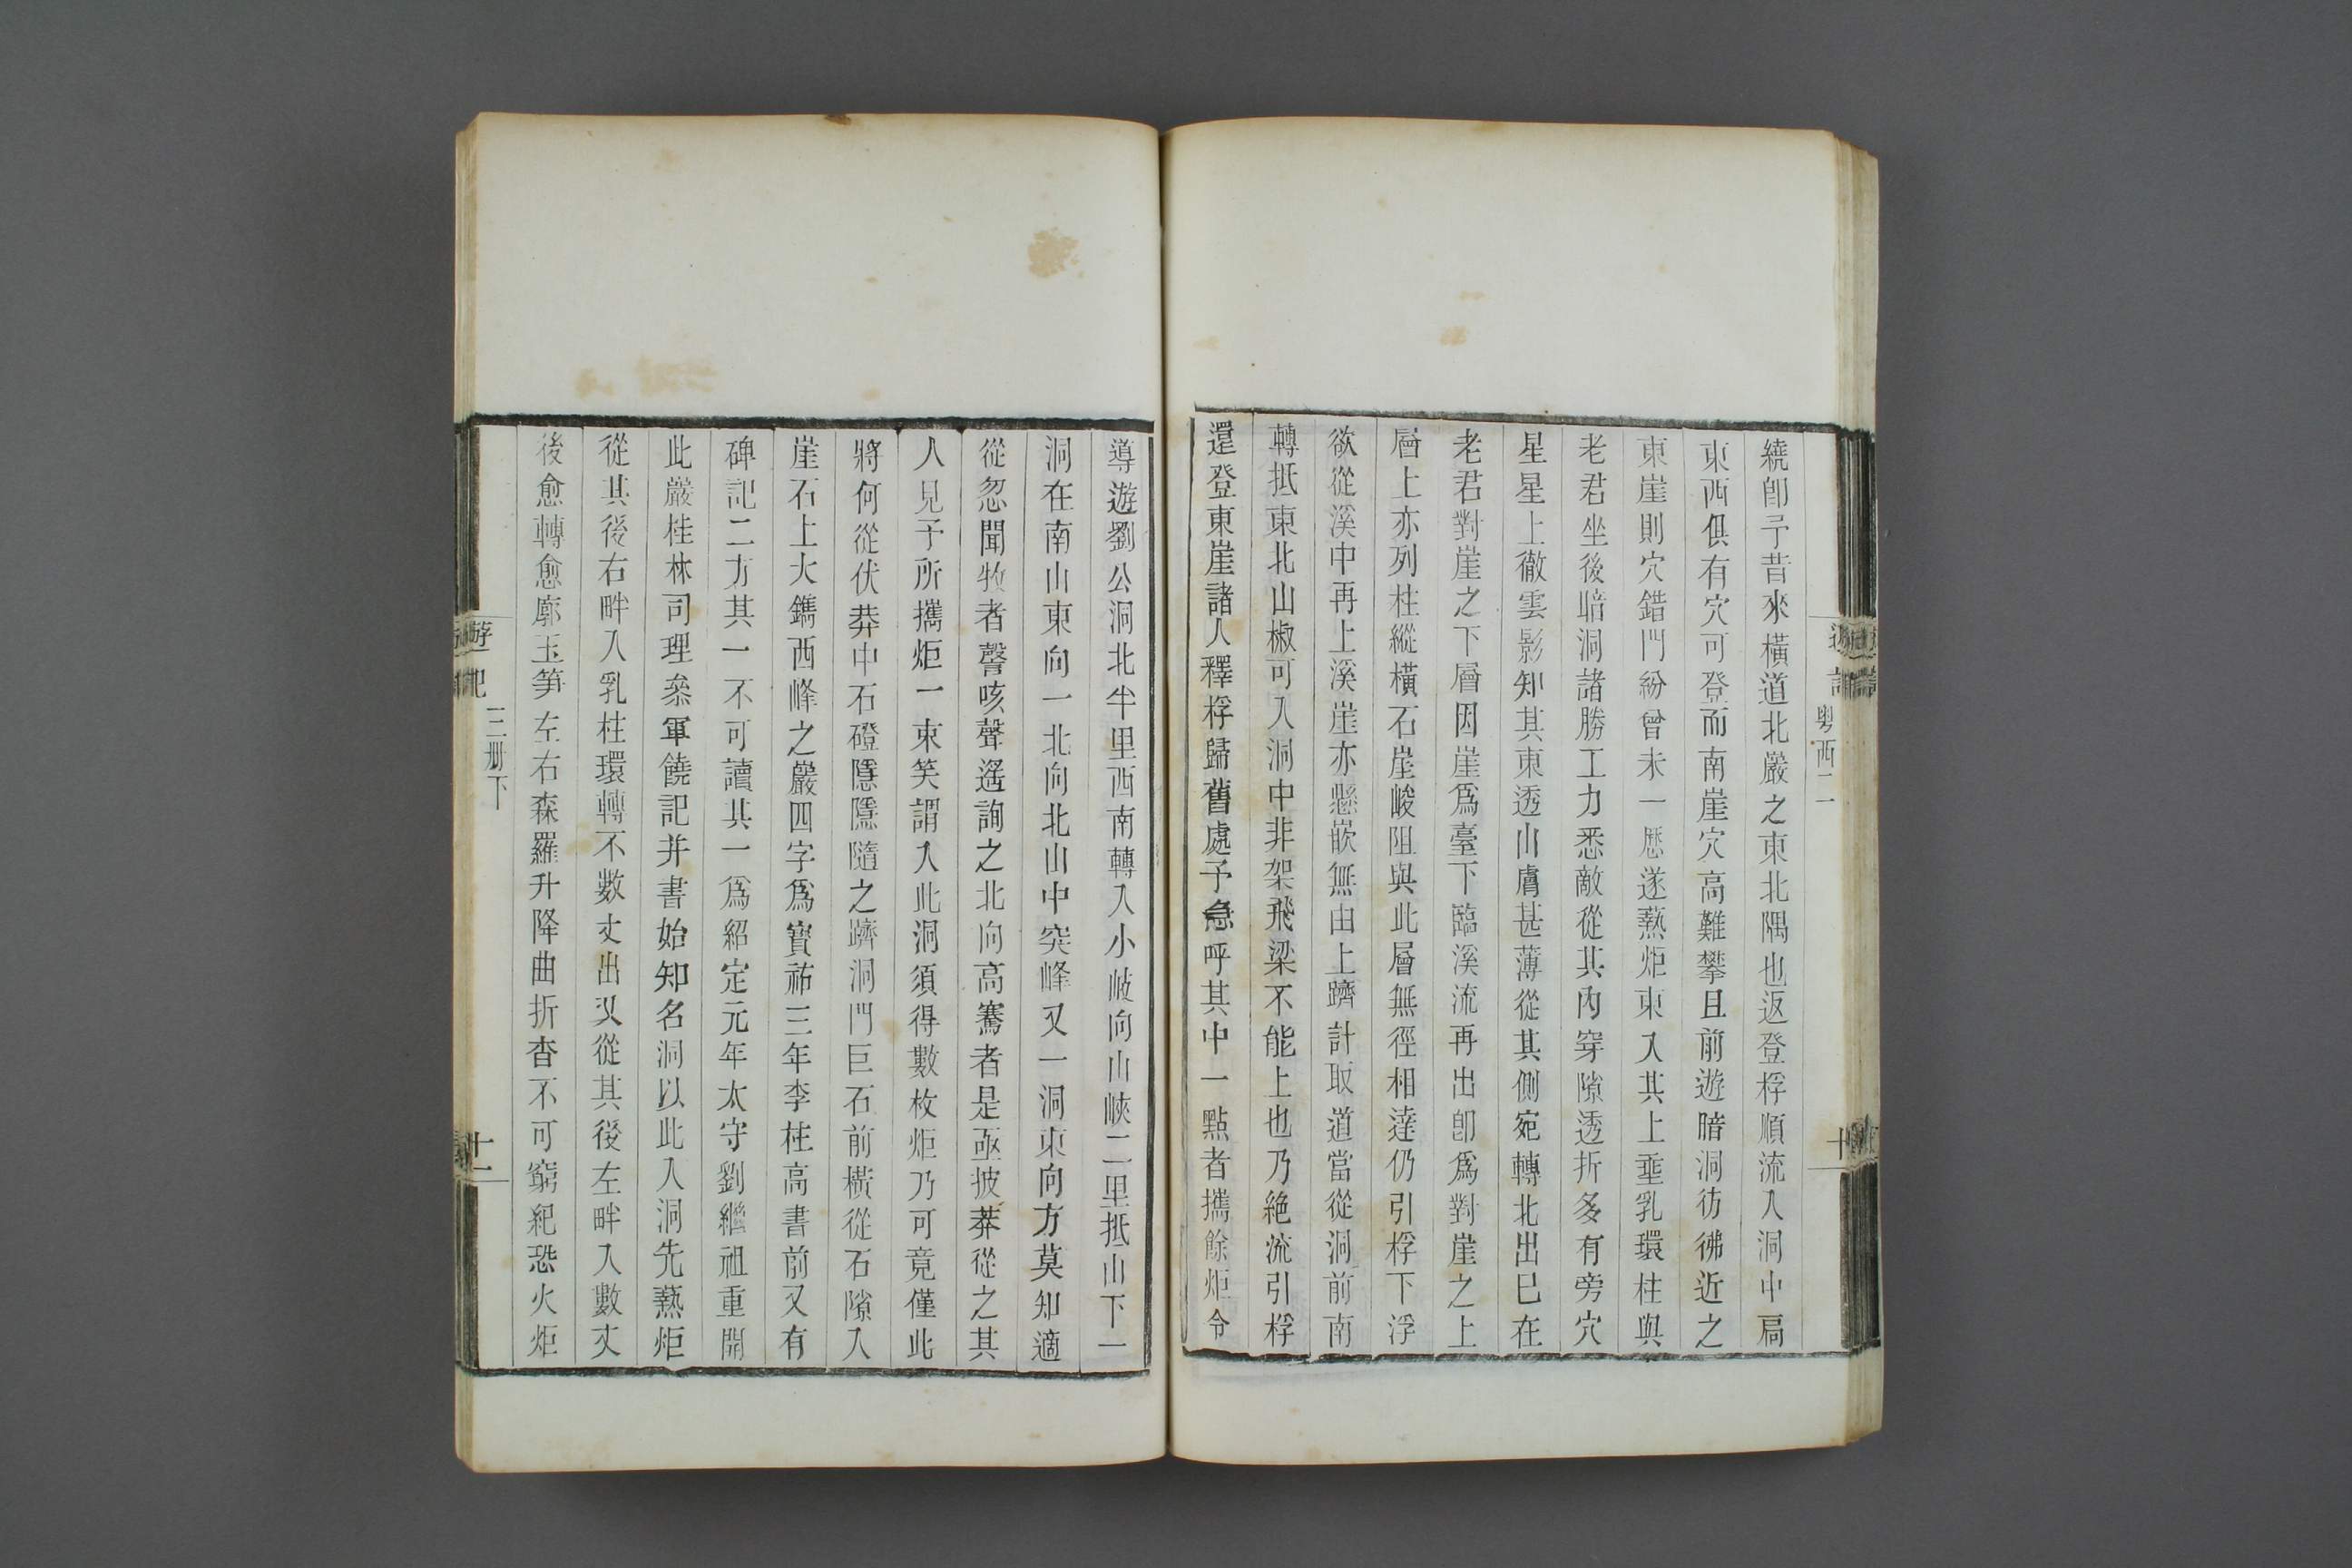 粤西二
十
繞卽予昔來橫道北巖之東北隅也返登桴順流入洞中扃
東西俱有穴可登而南崖穴高難攀且前遊暗洞彷彿近之
東崖則穴錯門紛曾未一歷遂爇炬東入其上垂乳環柱與
老君坐後暗洞諸勝工力悉敵從其內穿隙透折多有旁穴
星星上徹雲影知其東透山膚甚薄從其側宛轉北出巳在
老君對崖之下層因崖爲臺下臨溪流再出卽爲對崖之上
層上亦列柱縱橫石崖峻阻與此層無徑相達仍引桴下浮
欲從溪中再上溪崖亦懸嵌無由上躋計取道當從洞前南
轉抵東北山椒可入洞中非架飛梁不能上也乃絶流引桴
還登東崖諸人釋桴歸舊處予急呼其中一點者攜餘炬令
導遊劉公洞北半里西南轉入小岐向山峽二里抵山下一
洞在南山東向一北向北山中突峰又一洞東向方莫知適
從忽聞牧者謦咳聲遙詢之北向高騫者是亟披莽從之其
人見予所攜炬一束笑謂入此洞須得數枚炬乃可竟僅此
將何從伏莽中石磴隱隱隨之躋洞門巨石前橫從石隙入
崖石上大鐫西峰之巖四字爲寶祐三年李桂高書前又有
碑記二方其一不可讀其一爲紹定元年太守劉繼祖重開
此巖桂林司理叅軍饒記并書始知名洞以此入洞先爇炬
從其後右畔入乳柱環轉不數丈出又從其後左畔入數丈
後愈轉愈廓玉筍左右森羅升降曲折杳不可窮紀恐火炬
遊記
三册下
十一